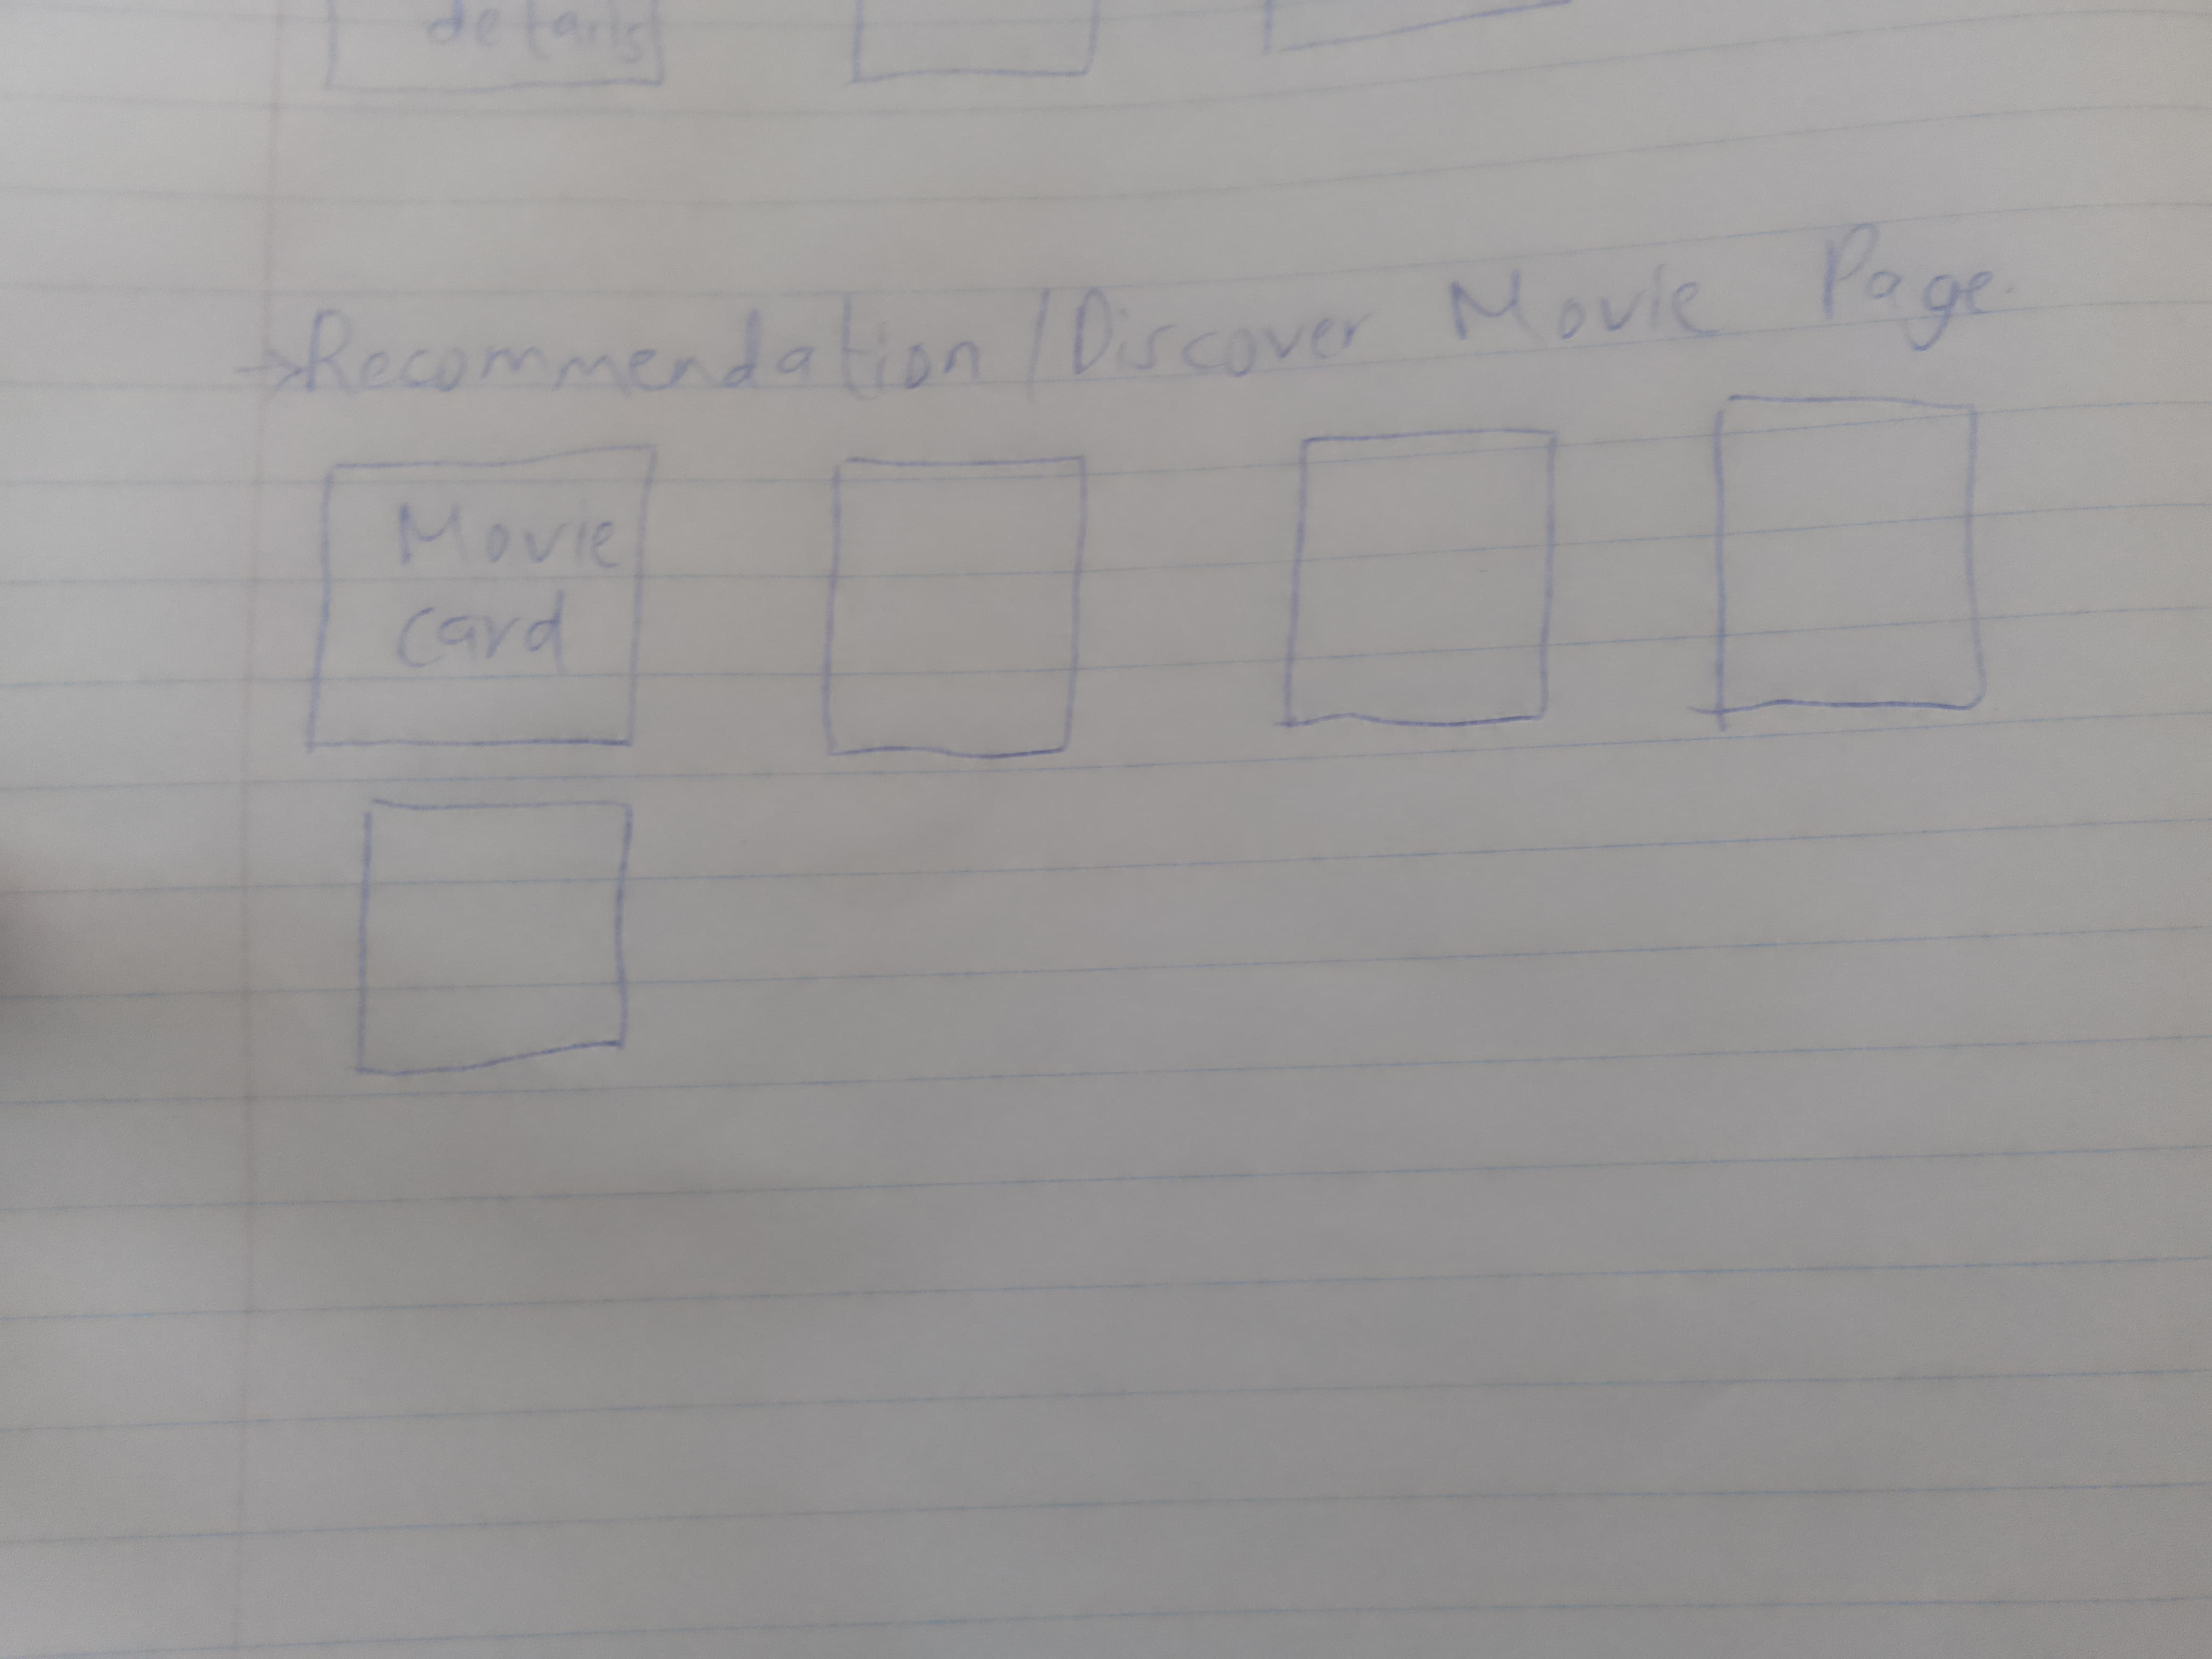 details
→Recommendation / Discover Movie Page.
Movie
card